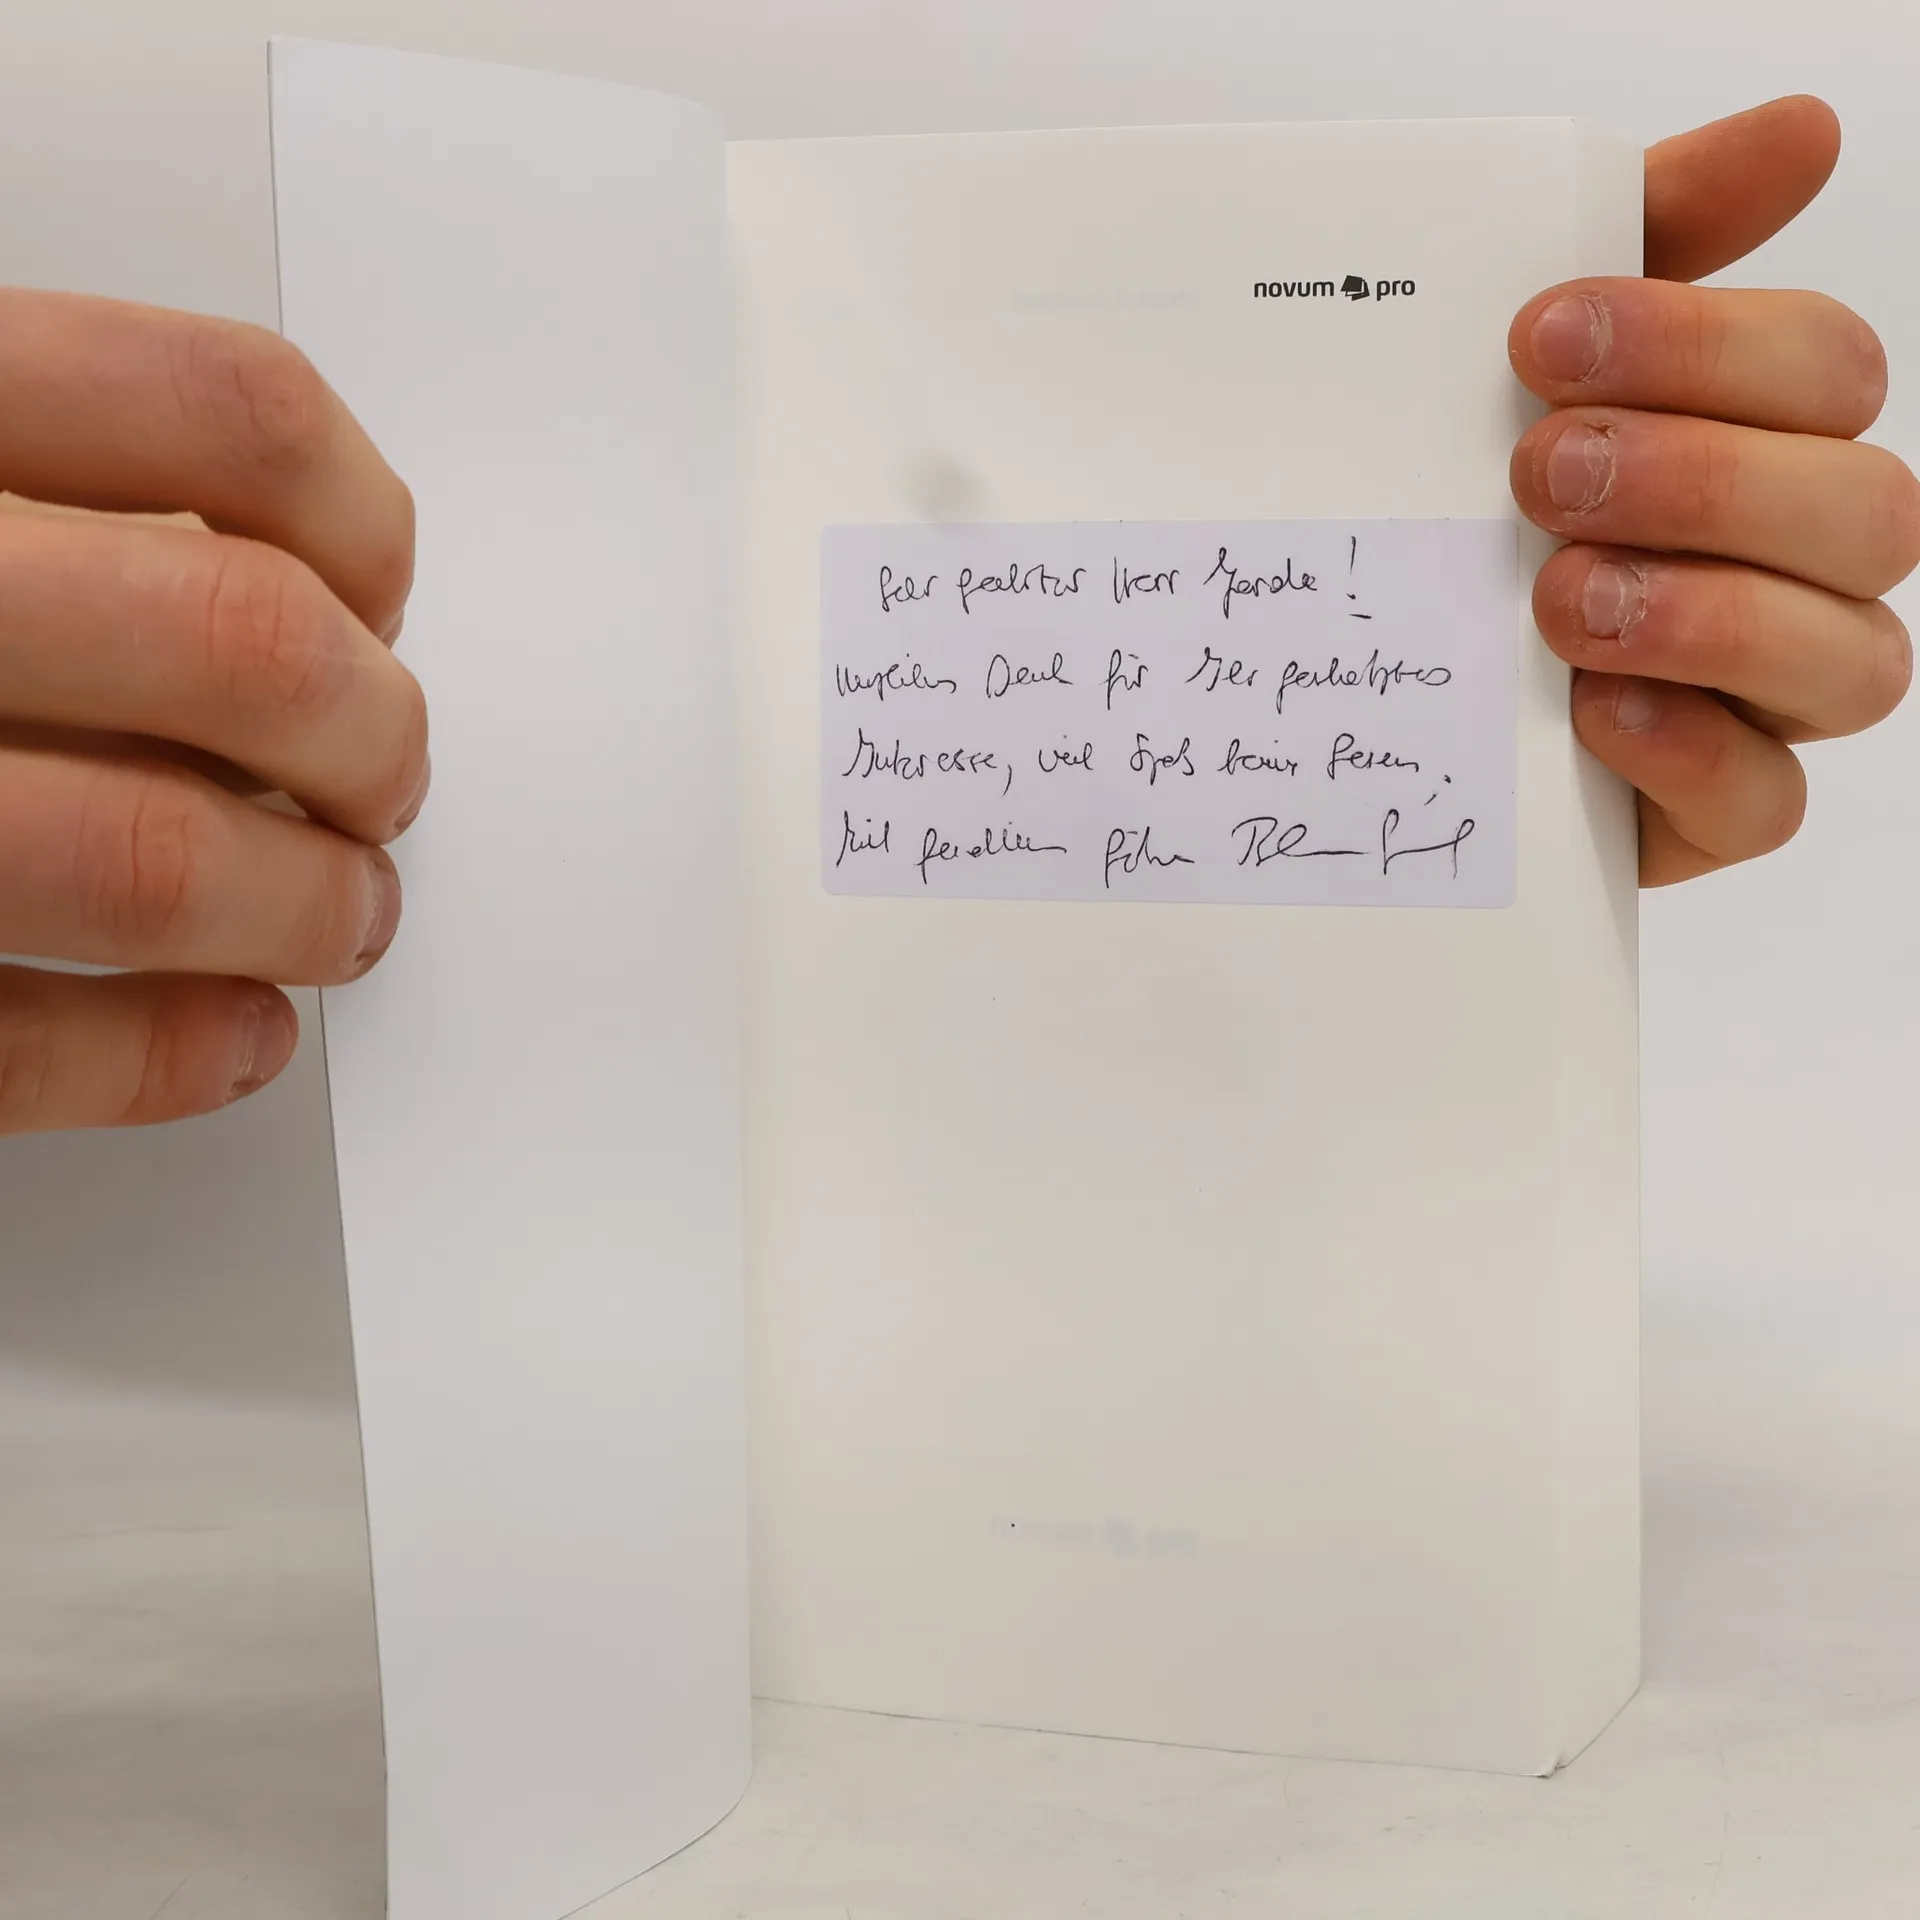 novum pro
Sehr geehrter Herr
Herzlichen Dank für Ihr geschätztes
Interesse, viel Spaß beim Lesen.
Mit freundlichen Grüßen